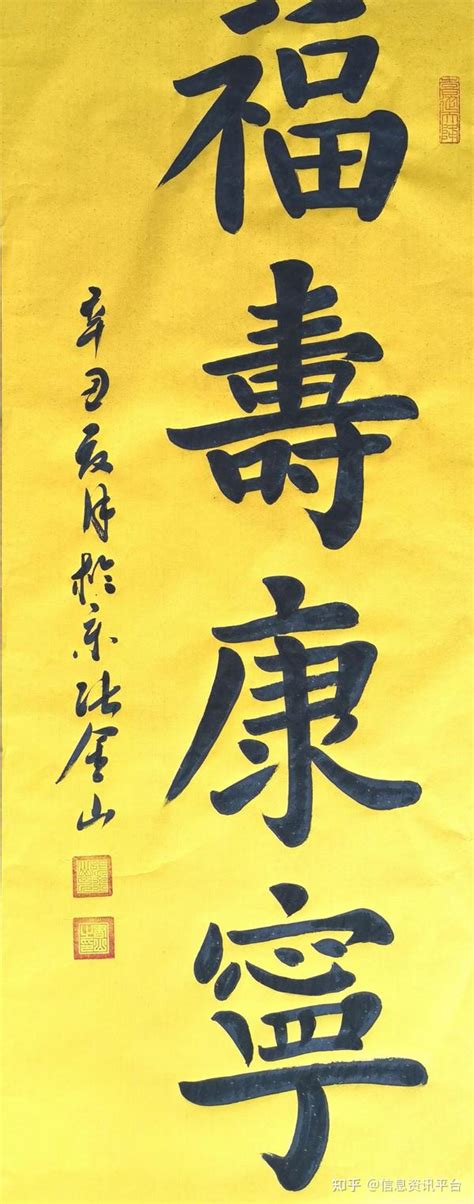 福壽康寧
辛丑夏月於京張金山
知乎 @信息资讯平台